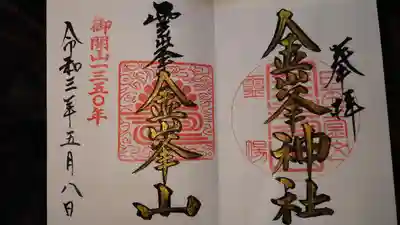 奉拝
金峯神社
霊峯
金峯山
御開山一三五〇年
令和三年五月八日